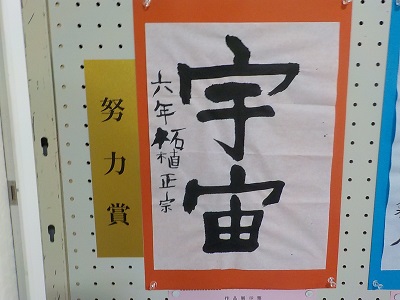 宇宙
六年柘植正宗
努力賞